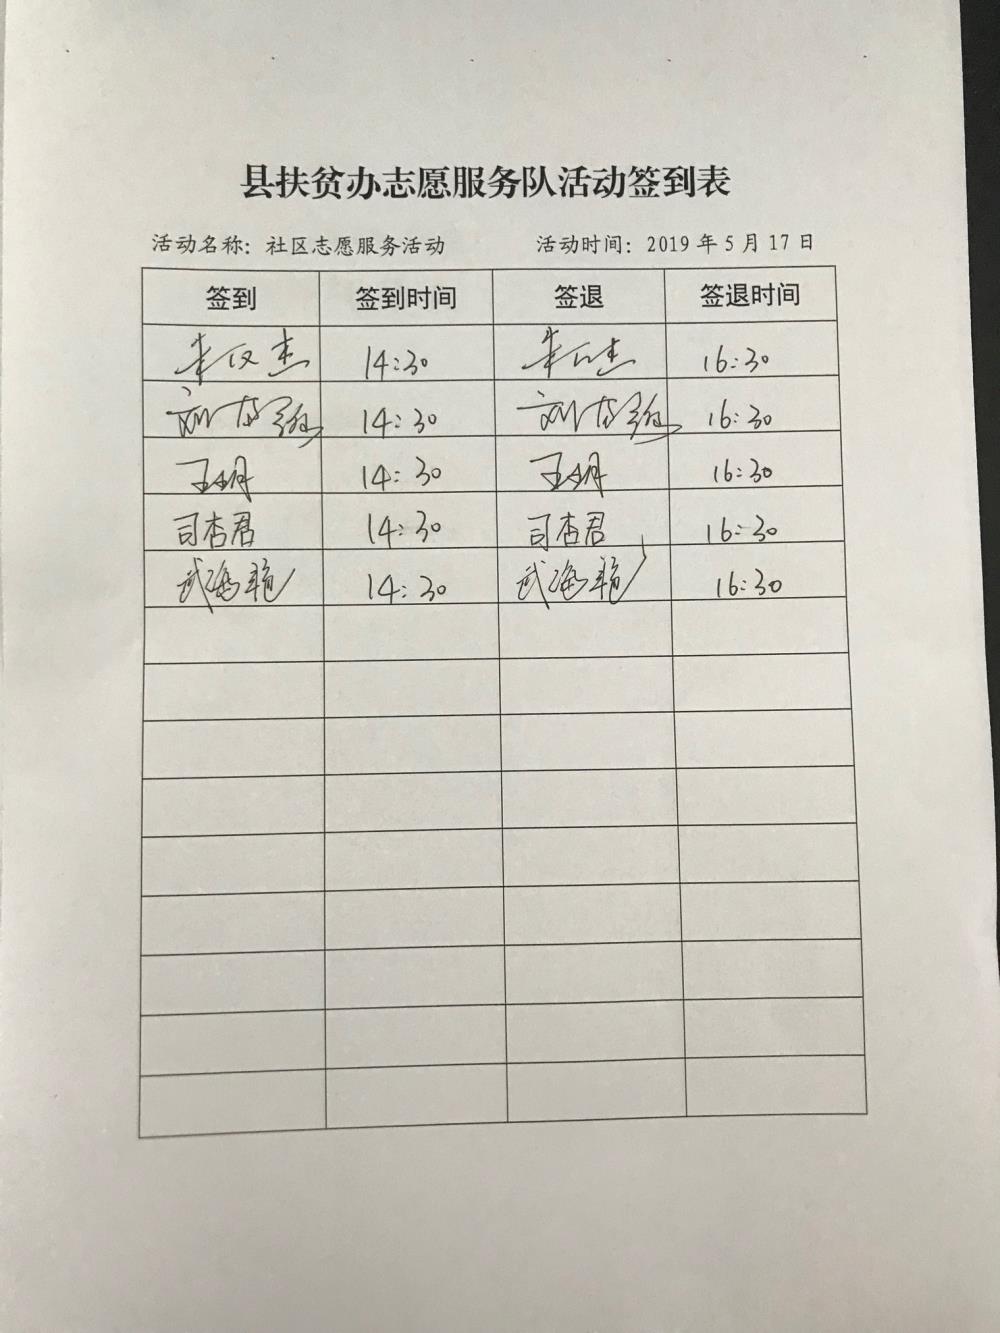 县扶贫办志愿服务队活动签到表
活动名称：社区志愿服务活动 活动时间：2019年5月17日
签到 签到时间 签退 签退时间
14:30 16:30
刘 14:30 刘 16:30
王 14:30 王 16:30
司杏君 14:30 司杏君 16:30
武海艳 14:30 武海艳 16:30